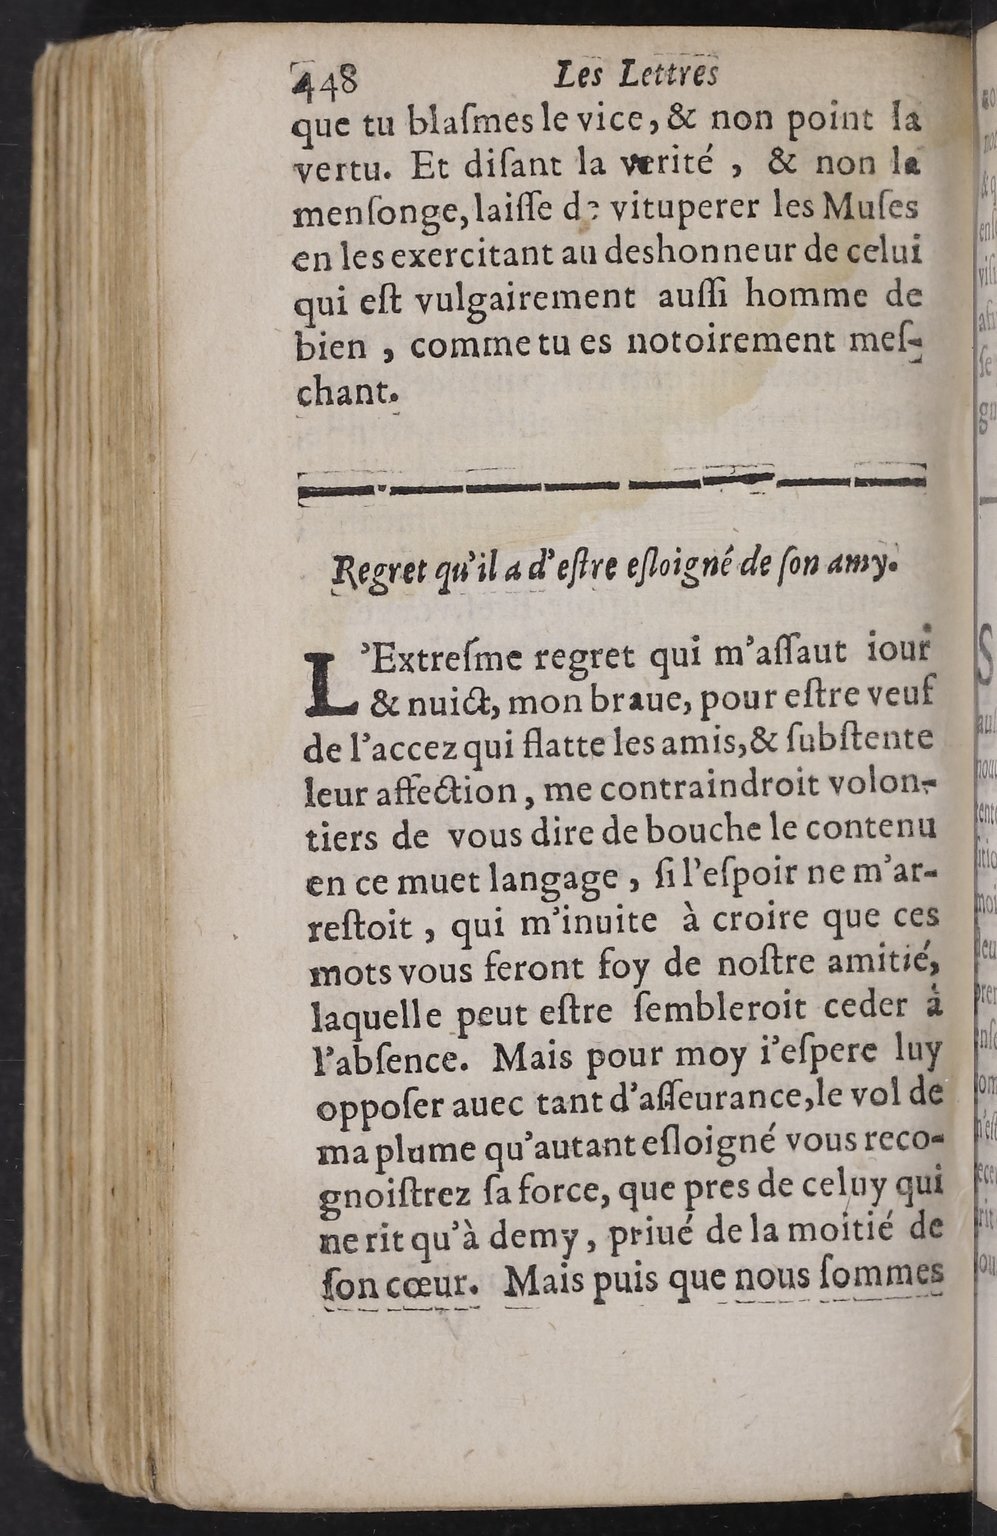 448 Les Lettres
que tu blaſmes le vice, & non point la
vertu. Et diſant la verité , & non la
menſonge, laiſſe de vituperer les Muſes
en les exercitant au deshonneur de celui
qui eſt vulgairement auſſi homme de
bien , comme tu es notoirement meſ-
chant.
Regret qu'il a d'eſtre eſloigné de ſon amy.
L'Extreſme regret qui m'aſſaut iour
& nuict, mon braue, pour eſtre veuf
de l'accez qui flatte les amis, & ſubſtente
leur affection, me contraindroit volon-
tiers de vous dire de bouche le contenu
en ce muet langage , ſi l'eſpoir ne m'ar-
reſtoit , qui m'inuite à croire que ces
mots vous feront foy de noſtre amitié,
laquelle peut eſtre ſembleroit ceder à
l'abſence. Mais pour moy i'eſpere luy
oppoſer auec tant d'aſſeurance, le vol de
ma plume qu'autant eſloigné vous reco-
gnoiſtrez ſa force, que pres de celuy qui
ne rit qu'à demy , priué de la moitié de
ſon cœur. Mais puis que nous ſommes